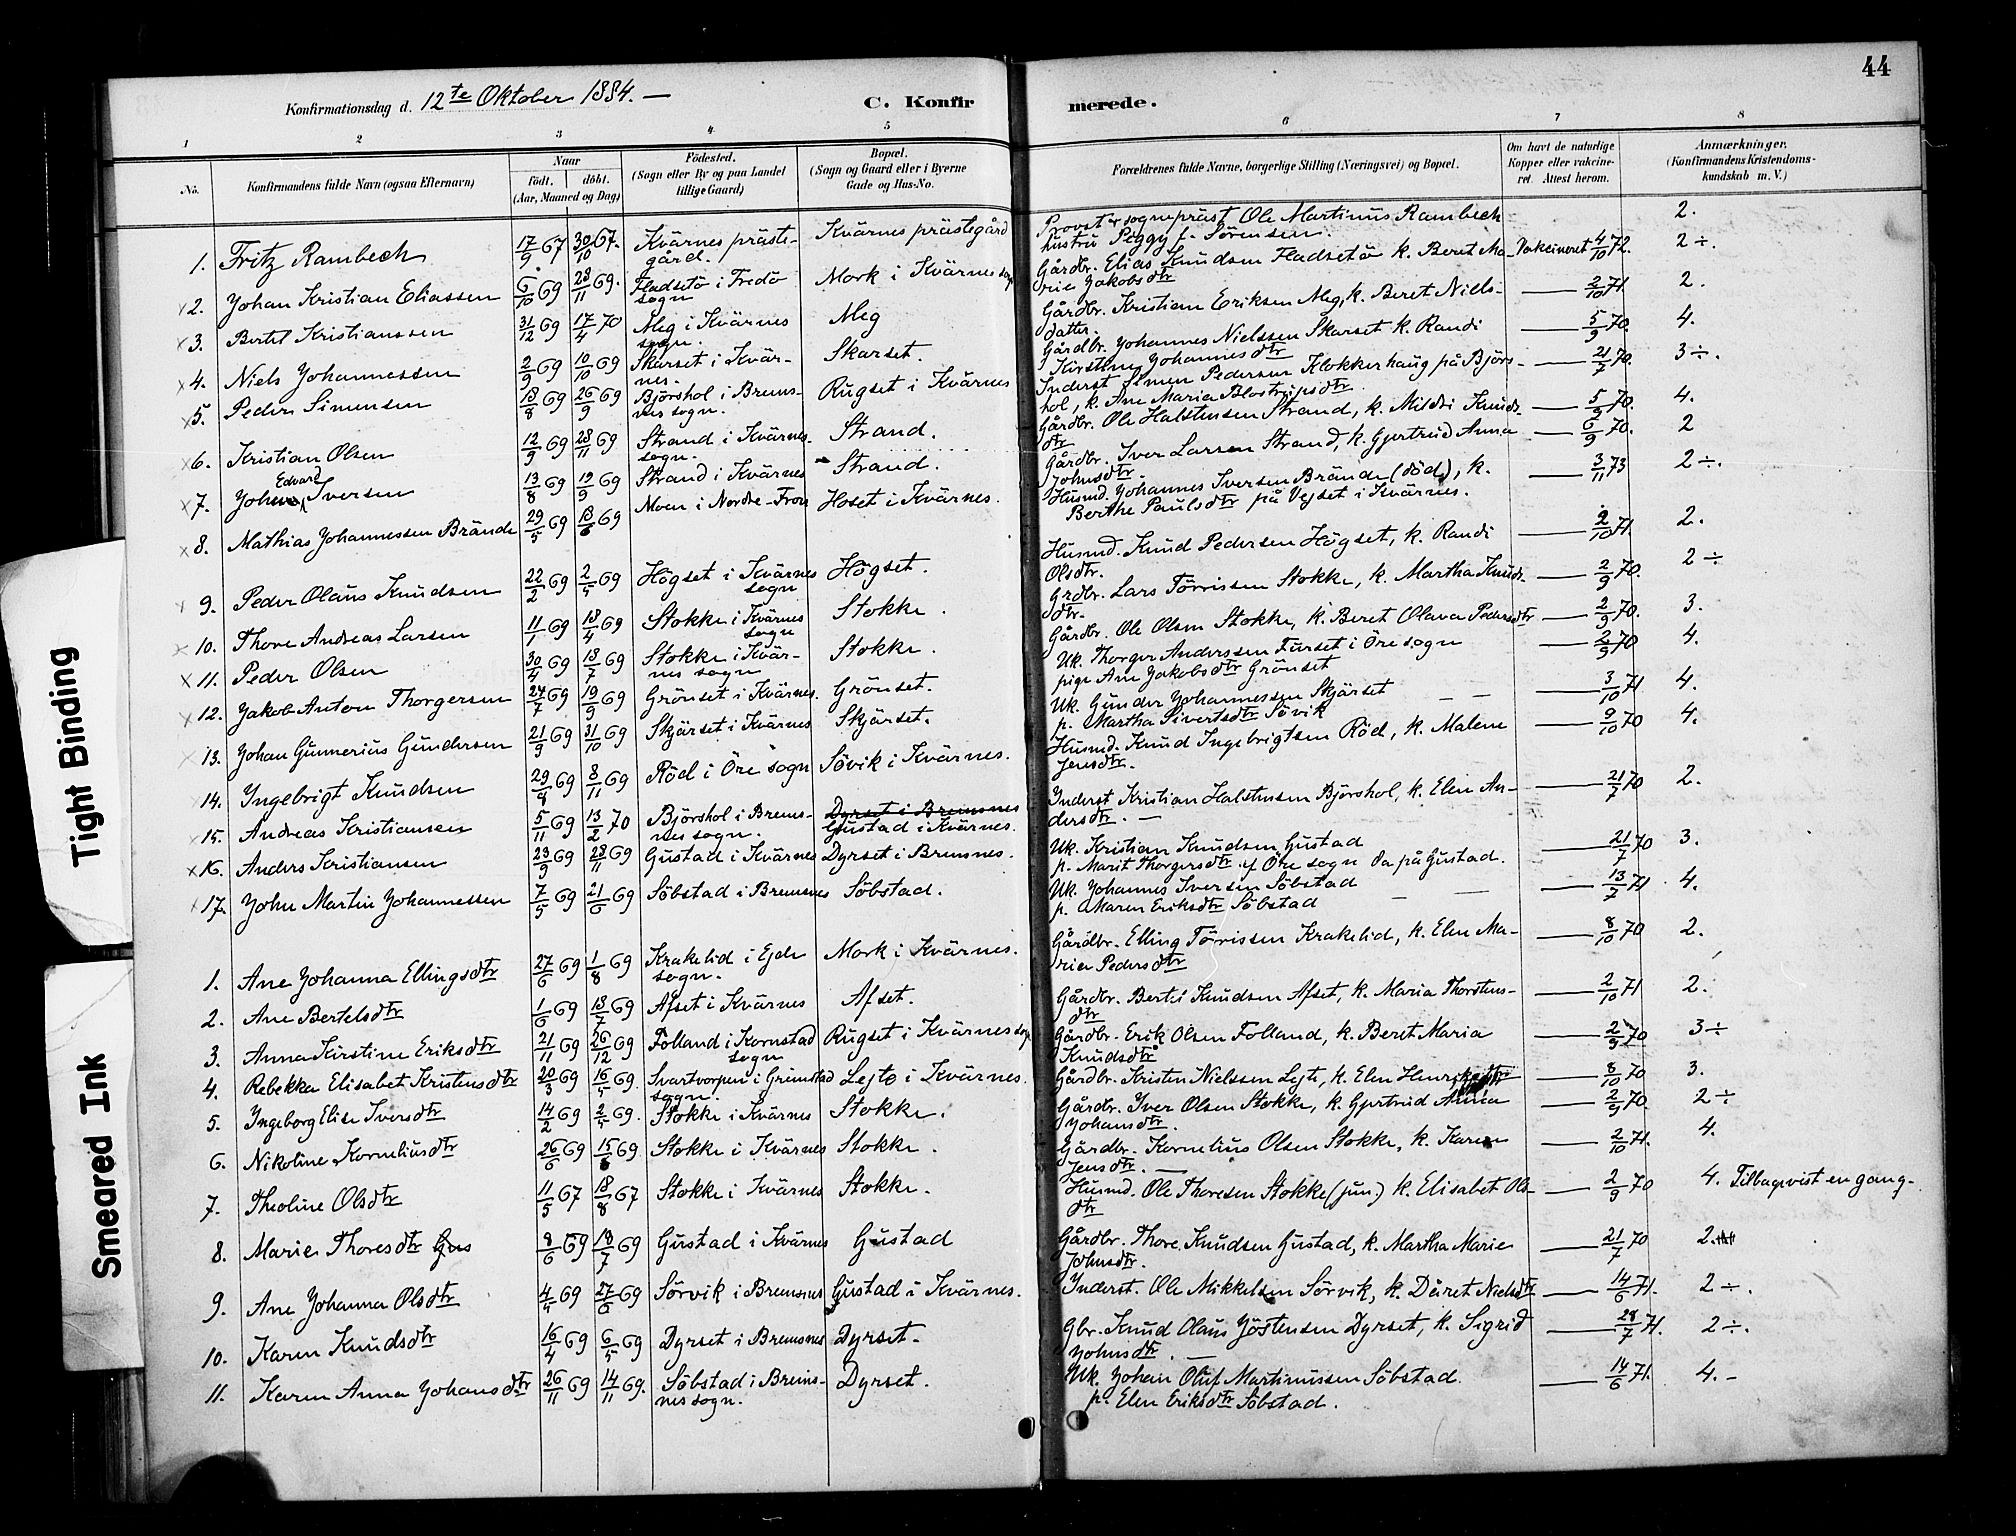 44
Konfirmationsdag d. 12te Oktober 1884. —
C. Konfirmerede.
1 2 3 4 5 6 7 8
No.
Konfirmandens fulde Navn (ogsaa Efternavn)
Naar
födt. döbt.
(Aar, Maaned og Dag)
Födested.
(Sogn eller By og paa Landet
tillige Gaard)
Bopæl.
(Sogn og Gaard eller i Byerne
Gade og Hus-No.
Forældrenes fulde Navne, borgerlige Stilling (Næringsvei) og Bopæl.
Om havt de naturlige
Kopper eller vakcine-
ret. Attest herom.
Anmærkninger.
(Konfirmandens Kristendoms-
kundskab m. V.)
1. Fritz Rambech 17/9 67 30/10 67. Kvärnes präste-gård. Kvärnes prästegård Provst & sognepräst Ole Martinus Rambech hustru Peggy f. Sörensen. Vakcineret 4/10 72. 2.
2. Johan Kristian Eliassen 6/10 69 28/11 69. Fladsetö i Fredö sogn Mork i Kvärnes sogn Gårdbr. Elias Knudsen Fladsetö k. Beret Ma-rie Jakobsdtr — 2/10 71. 2 ÷.
3. Bertel Kristianssen 31/12 69 17/4 70 Meg i Kvärnes sogn. Meg Gårdbr. Kristian Eriksen Meg, k. Beret Niels-datter. — 5/9 70. 2.
4. Niels Johannessen 2/9 69 10/10 69 Skarset i Kvär-nes. Skarset. Gårdbr. Johannes Nielssen Skarset k. Randi Kirstine Johannesdtr — 21/7 70. 4.
5. Peder Simensen 18/8 69 26/9 69 Björshol i Brems-nes sogn. Rugset i Kvärnes Inderst Simen Pedersen Klokkerhaug på Björs-hol, k. Ane Maria Blostrupsdtr — 5/9 70. 3 ÷.
6. Kristian Olsen 12/9 69 28/11 69 Strand i Kvärnes sogn. Strand. Gårdbr. Ole Halstensen Strand, k. Mildri Knuds-dtr — 6/9 70. 4.
7. John Edvard Iversen 13/8 69 19/9 69 Strand i Kvärnes Strand. Gårdbr. Iver Larsen Strand, k. Gjertrud Anna Johnsdtr. — 3/11 73 2
8. Mathias Johannessen Brände 29/5 69 18/6 69 Moen i Nordre-Fron Hoset i Kvärnes. Husmd. Johannes Iversen Brände (död), k. Berthe Paulsdtr på Vejset i Kvärnes. 2 ÷.
9. Peder Olaus Knudsen 22/2 69 2/5 69 Högset i Kvärnes sogn Högset. Husmd. Knud Pedersen Högset, k. Randi Olsdtr. — 2/10 71. 2.
10. Thore Andreas Larsen 11/1 69 18/4 69 Stokke i Kvärnes sogn Stokke. Grdbr. Lars Törrissen Stokke, k. Martha Knuds-dtr. — 2/9 70. 2 ÷
11. Peder Olsen 30/4 69 18/7 69 Stokke i Kvär-nes sogn Stokke. Gårdbr. Ole Olsen Stokke, k. Beret Olava Pedersdtr — 2/9 70. 3.
12. Jakob Anton Thorgersen 27/7 69 19/9 69 Grönset i Kvärnes. Grönset. Uk. Thorger Anderssen Furset i Öre sogn pige Ane Jakobsdtr Grönset — 2/9 70 4.
13. Johan Gunnerius Gundersen 21/9 69 31/10 69 Skjärset i Kvärnes Skjärset. Uk. Gunder Johannessen Skjärset p. Martha Sivertsdtr Sövik — 3/10 71 4.
14. Ingebrigt Knudsen 29/8 69 8/11 69 Röd i Öre sogn Sövik i Kvärnes. Husmd. Knud Ingebrigtsen Röd, k. Malene Jensdtr. — 9/10 70 4.
15. Andreas Kristiansen 5/11 69 13/2 70 Björshol i Brems-nes sogn. Dyrset i Bremsnes Gustad i Kvärnes. Inderst Kristian Halstensen Björshol, k. Elen An-dersdtr. — 21/7 70 2.
16. Anders Kristiansen 23/9 69 28/11 69 Gustad i Kvärnes Dyrset i Bremsnes. Uk. Kristian Knudsen Gustad p. Marit Thorgersdtr af Öre sogn da på Gustad. — 21/7 70 3.
17. John Martin Johannessen 7/5 69 21/6 69 Söbstad i Bremsnes Söbstad. Uk. Johannes Iversen Söbstad p. Maren Eriksdtr Söbstad — 13/7 71 4.
1. Ane Johanna Ellingsdtr 27/6 69 1/8 69 Krakelid i Ejde sogn. Mork i Kvärnes. Gårdbr. Elling Törrissen Krakelid, k. Elen Ma-rie Pedersdtr — 8/10 70 2.
2. Ane Bertelsdtr 1/6 69 18/7 69 Afset i Kvärnes Afset. Gårdbr. Bertel Knudsen Afset, k. Maria Thorstens-dtr — 2/10 71 2.
3. Anna Kirstine Eriksdtr 21/11 69 26/12 69 Folland i Kornstad sogn Rugset i Kvärnes sogn Gårdbr. Erik Olsen Folland, k. Beret Maria Knudsdtr — 2/9 70 3 ÷
4. Rebekka Elisabet Kristensdtr 20/3 69 16/5 69. Svartvorpen i Grimstad sogn. Lejte i Kvärnes. Gårdbr. Kristen Nielssen Lejte, k. Elen — 8/10 70 3.
5. Ingeborg Elise Iversdtr 14/2 69 2/5 69. Stokke i Kvärnes Stokke. Gårdbr. Iver Olsen Stokke, k. Gjertrud Anna Johansdtr. — 2/9 70. 2 ÷
6. Nikoline Korneliusdtr 26/6 69 15/8 69. Stokke i Kvärnes Stokke. Gårdbr. Kornelius Olsen Stokke, k. Karen Jensdtr. — 2/10 71. 4.
7. Theoline Olsdtr 11/5 67 18/8 67 Stokke i Kvärnes Stokke. Husmd. Ole Thoresen Stokke (jun.) k. Elisabet Ols-dtr — 2/9 70 4. Tilbagevist en gang.
8. Marie Thoresdtr Gus 8/6 69 18/7 69 Gustad i Kvärnes Gustad Gårdbr. Thore Knudsen Gustad, k. Martha Marie Johnsdtr. — 21/7 70 2.
9. Ane Johanna Olsdtr 4/5 69 27/6 69 Sörvik i Bremsnes Gustad i Kvärnes. Inderst. Ole Mikkelsen Sörvik, k. Dåret Nielsdtr — 14/6 71. 2 ÷.
10. Karen Knudsdtr 16/4 69 6/5 69 Dyrset i Bremsnes Dyrset. Gbr. Knud Olaus Jöstensen Dyrset, k. Sigrid Johnsdtr. — 28/7 71. 2 ÷.
11. Karen Anna Johansdtr 26/11 69 14/11 69. Söbstad i Brems-nes sogn. Dyrset. Uk. Johan Oluf Martinussen Söbstad. p. Elen Eriksdtr Söbstad. — 14/6 71. 4. -
Tight Binding
Smeared Ink